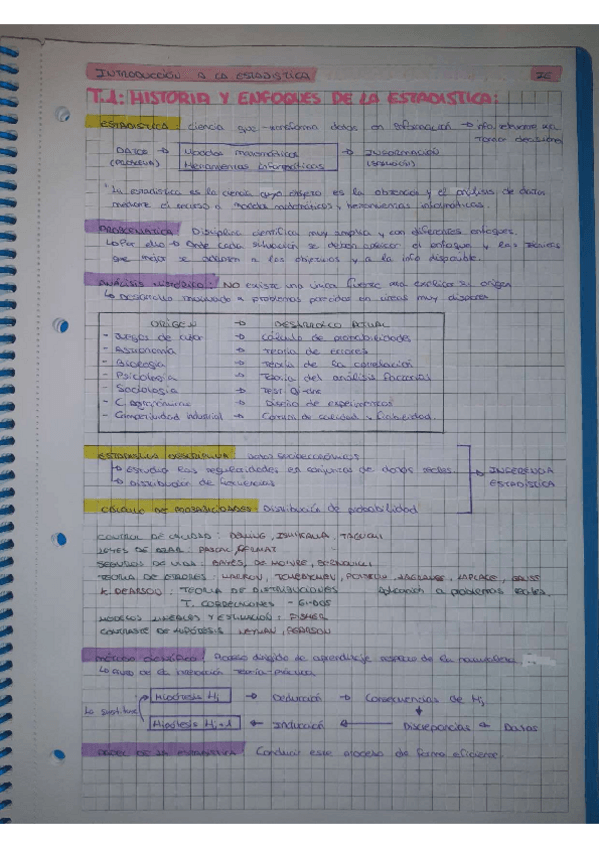 INTRODUCCIÓN A LA ESTADÍSTICA IE
T.1: HISTORIA Y ENFOQUES DE LA ESTADÍSTICA:
ESTADÍSTICA: ciencia que transforma datos en información → info relevante para
tomar decisiones
DATOS → Modelos matemáticos → INFORMACIÓN
(PROBLEMA) Herramientas informáticas (SOLUCIÓN)
"La estadística es la ciencia cuyo objeto es la obtención y el análisis de datos
mediante el recurso a modelos matemáticos y herramientas informáticas.
PROBLEMÁTICA: Disciplina científica muy amplia y con diferentes enfoques.
↳ Por ello → Ante cada situación se deben conocer el enfoque y las técnicas
que mejor se adapten a los objetivos y a la info disponible.
ANÁLISIS HISTÓRICO: NO existe una única fuente para explicar su origen
↳ Desarrollo asociado a problemas parecidos en áreas muy dispares
ORIGEN → DESARROLLO ACTUAL
- Juegos de azar → Cálculo de probabilidades
- Astronomía → Teoría de errores
- Biología → Teoría de la correlación
- Psicología → Teoría del análisis factorial
- Sociología → Test
- C. agronómicas → Diseño de experimentos
- Competitividad industrial → Control de calidad y fiabilidad.
ESTADÍSTICA DESCRIPTIVA: datos socioeconómicos
↳ Estudia las regularidades en conjuntos de datos reales → INFERENCIA
↳ Distribución de frecuencias ESTADÍSTICA
CÁLCULO DE PROBABILIDADES: Distribución de probabilidad
CONTROL DE CALIDAD: DEMING, ISHIKAWA, TAGUCHI
LEYES DE AZAR: PASCAL, FERMAT
SEGUROS DE VIDA: BAYES, DE MOIVRE, BERNOUILLI
TEORÍA DE ERRORES: MARKOV, TCHEBYCHEV, POISSON, LAGRANGE, LAPLACE, GAUSS
K. PEARSON: TEORÍA DE DISTRIBUCIONES Aplicación a problemas reales
T. CORRELACIONES
MODELOS LINEALES Y ESTIMACIÓN: FISHER
CONTRASTE DE HIPÓTESIS: PEARSON
MÉTODO CIENTÍFICO: Proceso dirigido de aprendizaje respecto de la naturaleza
↳ Interacción teoría-práctica
Hipótesis Hj → Deducción → Consecuencias de Hj
Lo sustituye
Hipótesis Hj+1 ← Inducción ← Discrepancias ← Datos
PAPEL DE LA ESTADÍSTICA: Conducir este proceso de forma eficiente.